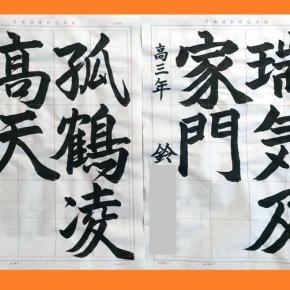 瑞気及
家門
高三年 鈴
孤鶴凌
髙天